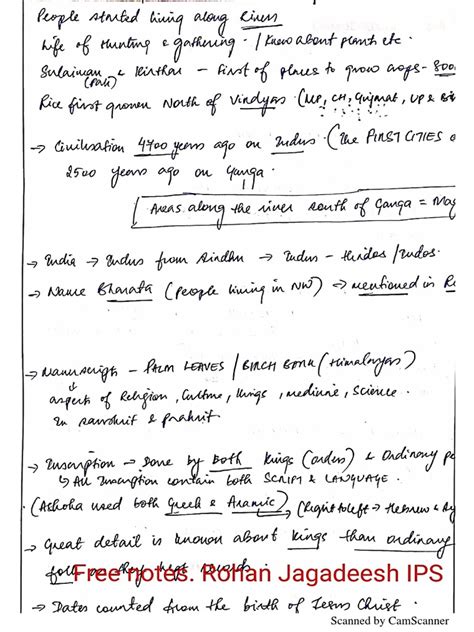 People started living along Rivers
Life of Hunting & gathering. / Know about plants etc.
Sulaiman & Kirthar – first of places to grow crops - 800
(Pak)
Rice first grown North of Vindyas (MP, CH, Gujrat, UP & Bi
→ Civilisation 4700 years ago on Indus. (The FIRST CITIES o
2500 years ago on Ganga.
Areas along the river south of Ganga = Mag
→ India → Indus from Sindhu → Indus - Hindos / Indos.
→ Name Bharata (people living in NW) → mentioned in R
→ Manuscripts - PALM LEAVES / BIRCH BARK (Himalayas)
aspects of Religion, Culture, Kings, medicine, Science.
In sanskrit & Prakrit.
→ Inscription – Done by Both Kings (orders) & Ordinary pe
↳ All Inscription contain both SCRIPT & LANGUAGE.
(Ashoka used both Greek & Aramic) (Right to left → Hebrew &
→ Great detail is known about kings than ordinary
folk as they kept records.
Free notes. Rohan Jagadeesh IPS
→ Dates counted from the birth of Jesus Christ.
Scanned by CamScanner